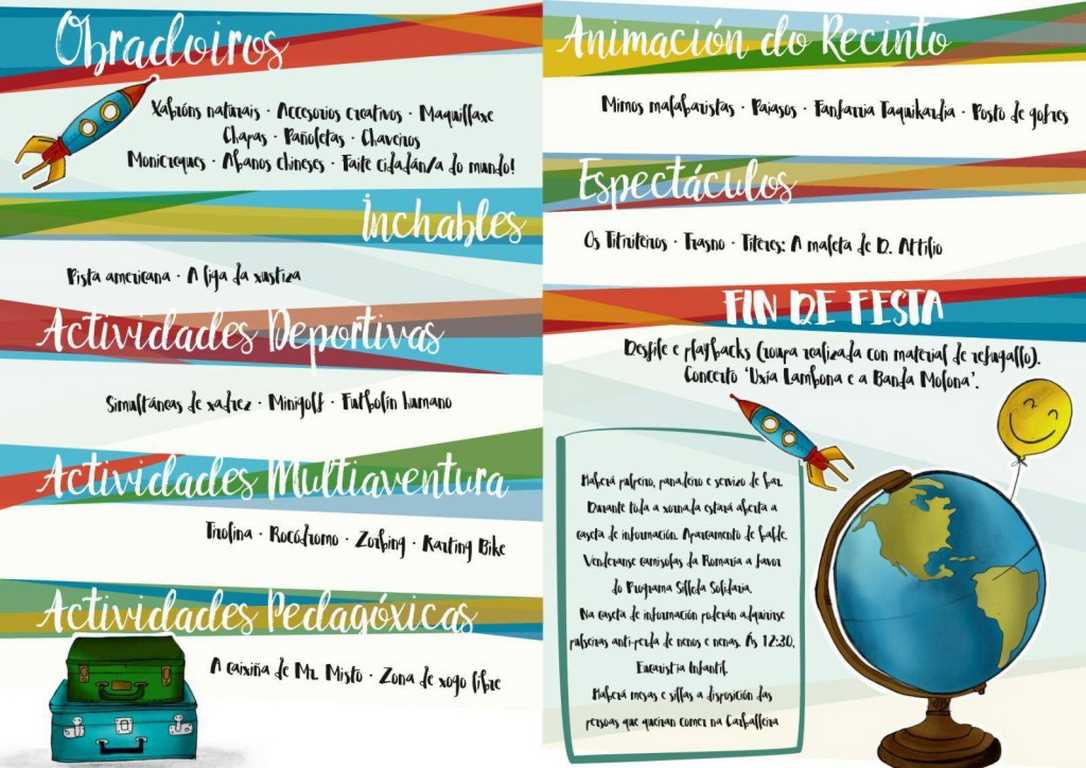 Obradoiros
Xabróns naturais · Accesorios creativos · Maquillaxe
Chapas · Pañoletas · Chaveiros
Monicreques · Abanos chineses · Faite cidadán/a do mundo!
Inchables
Pista americana · A liga da xustiza
Actividades Deportivas
Simultáneas de xadrez · Minigolf · Futbolín humano
Actividades Multiaventura
Tirolina · Rocódromo · Zorbing · Karting Bike
Actividades Pedagóxicas
A caixiña de Mr. Misto · Zona de xogo libre
Animación do Recinto
Mimos malabaristas · Paiasos · Fanfarria Taquikardia · Posto de gofres
Espectáculos
Os Titiriteiros · Trasno · Títeres: A maleta de D. Attilio
FIN DE FESTA
Desfile e playbacks (roupa realizada con material de refugallo).
Concerto 'Uxía Lambona e a Banda Molona'.
Haberá pulpeiro, panadeiro e servizo de bar.
Durante toda a xornada estará aberta a
caseta de información. Aparcamento de balde.
Venderanse camisolas da Romaría a favor
do Programa Silleda Solidaria.
Na caseta de información poderán adquirirse
pulseiras anti-perda de nenos e nenas. Ás 12:30,
Eucaristía Infantil.
Haberá mesas e sillas a disposición das
persoas que queiran comer na Carballeira